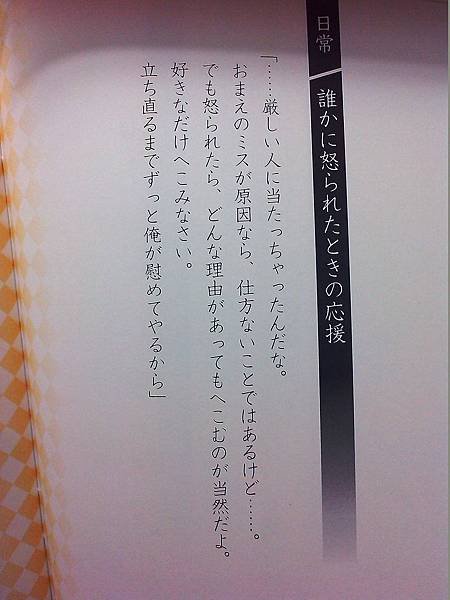 日常
誰かに怒られたときの応援
「……厳しい人に当たっちゃったんだな。
おまえのミスが原因なら、仕方ないことではあるけど……。
でも怒られたら、どんな理由があってもへこむのが当然だよ。
好きなだけへこみなさい。
立ち直るまでずっと俺が慰めてやるから」